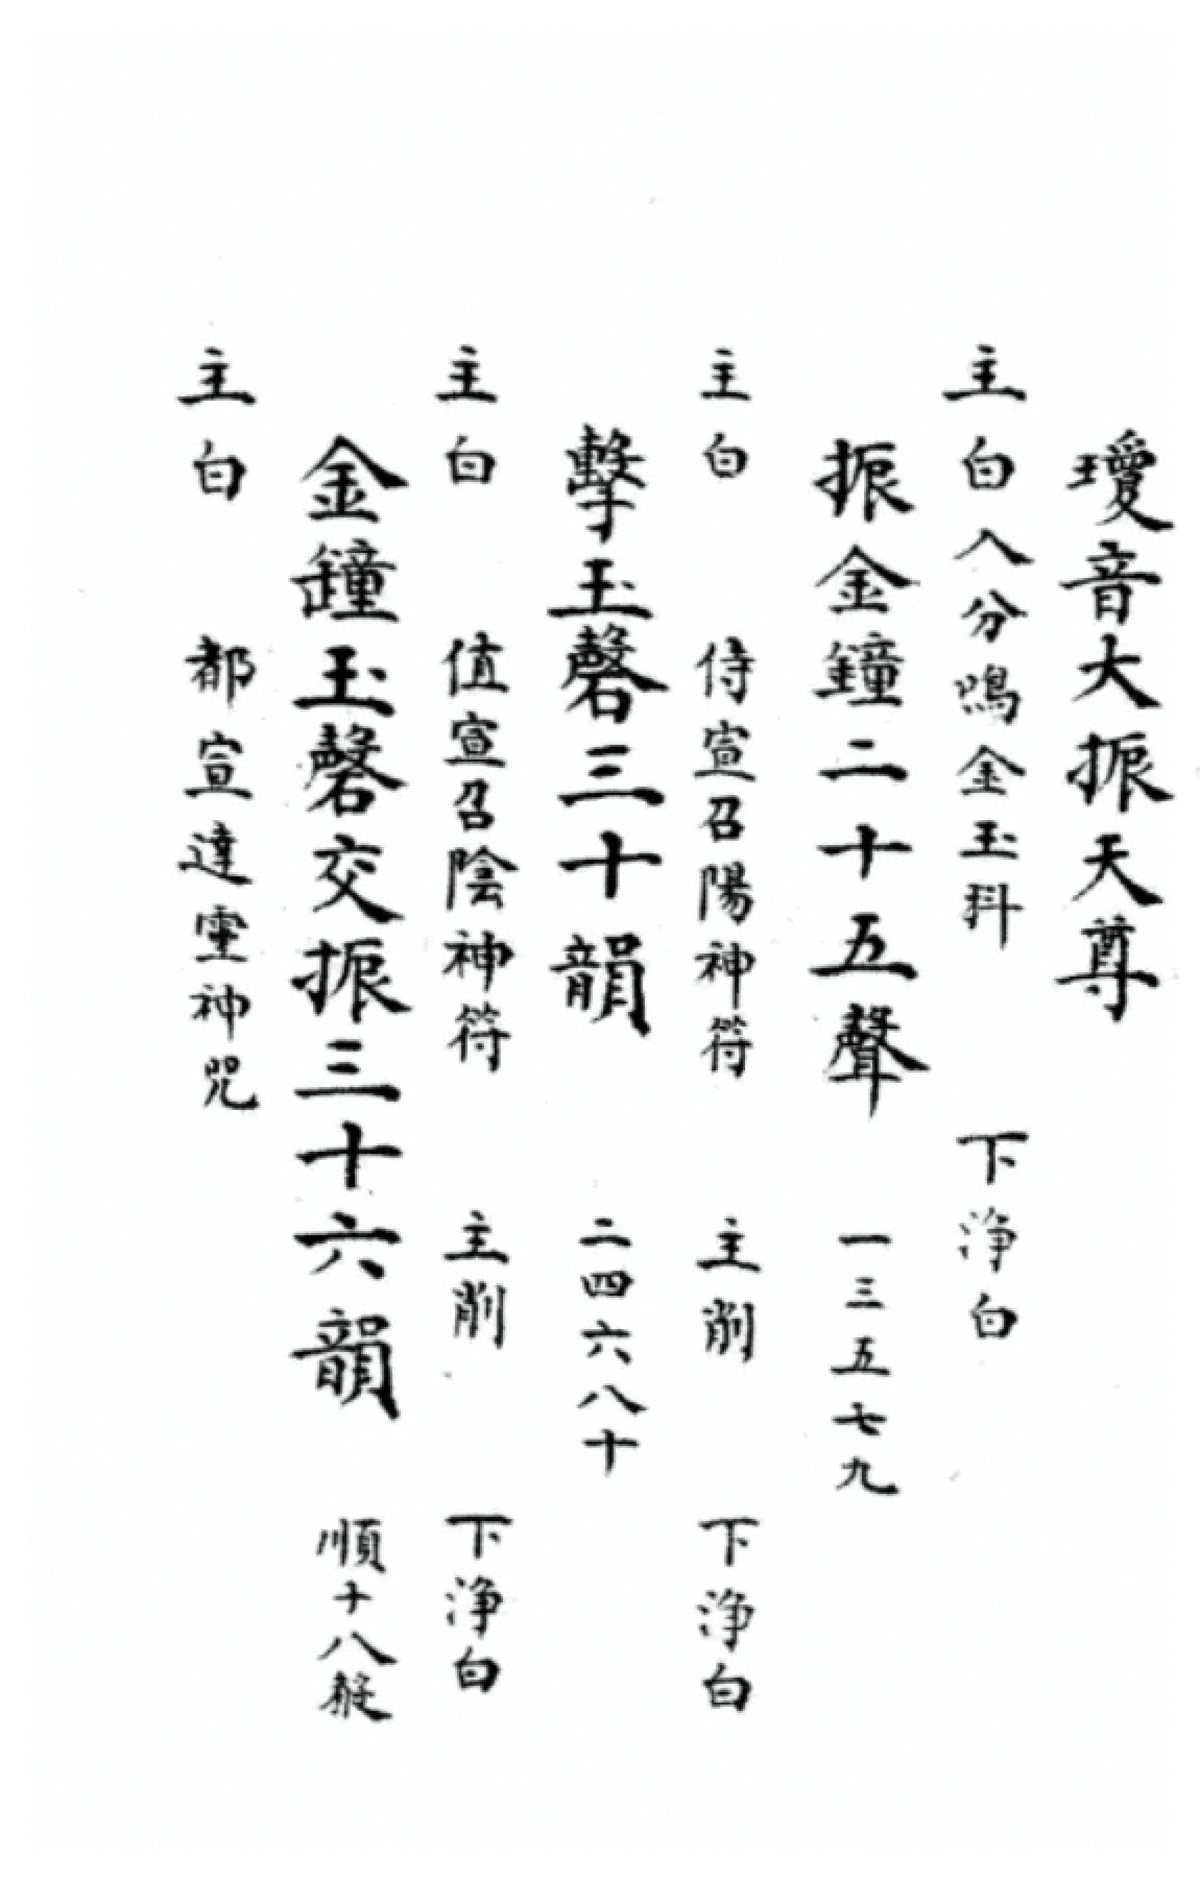 瓊音大振天尊
主白入分鳴金玉科 下淨白
振金鐘二十五聲 一三五七九
主白 侍宣召陽神符 主削 下淨白
擊玉磬三十韻 二四六八十
主白 值宣召陰神符 主削 下淨白
金鐘玉磬交振三十六韻 順十八
主白 都宣達靈神咒